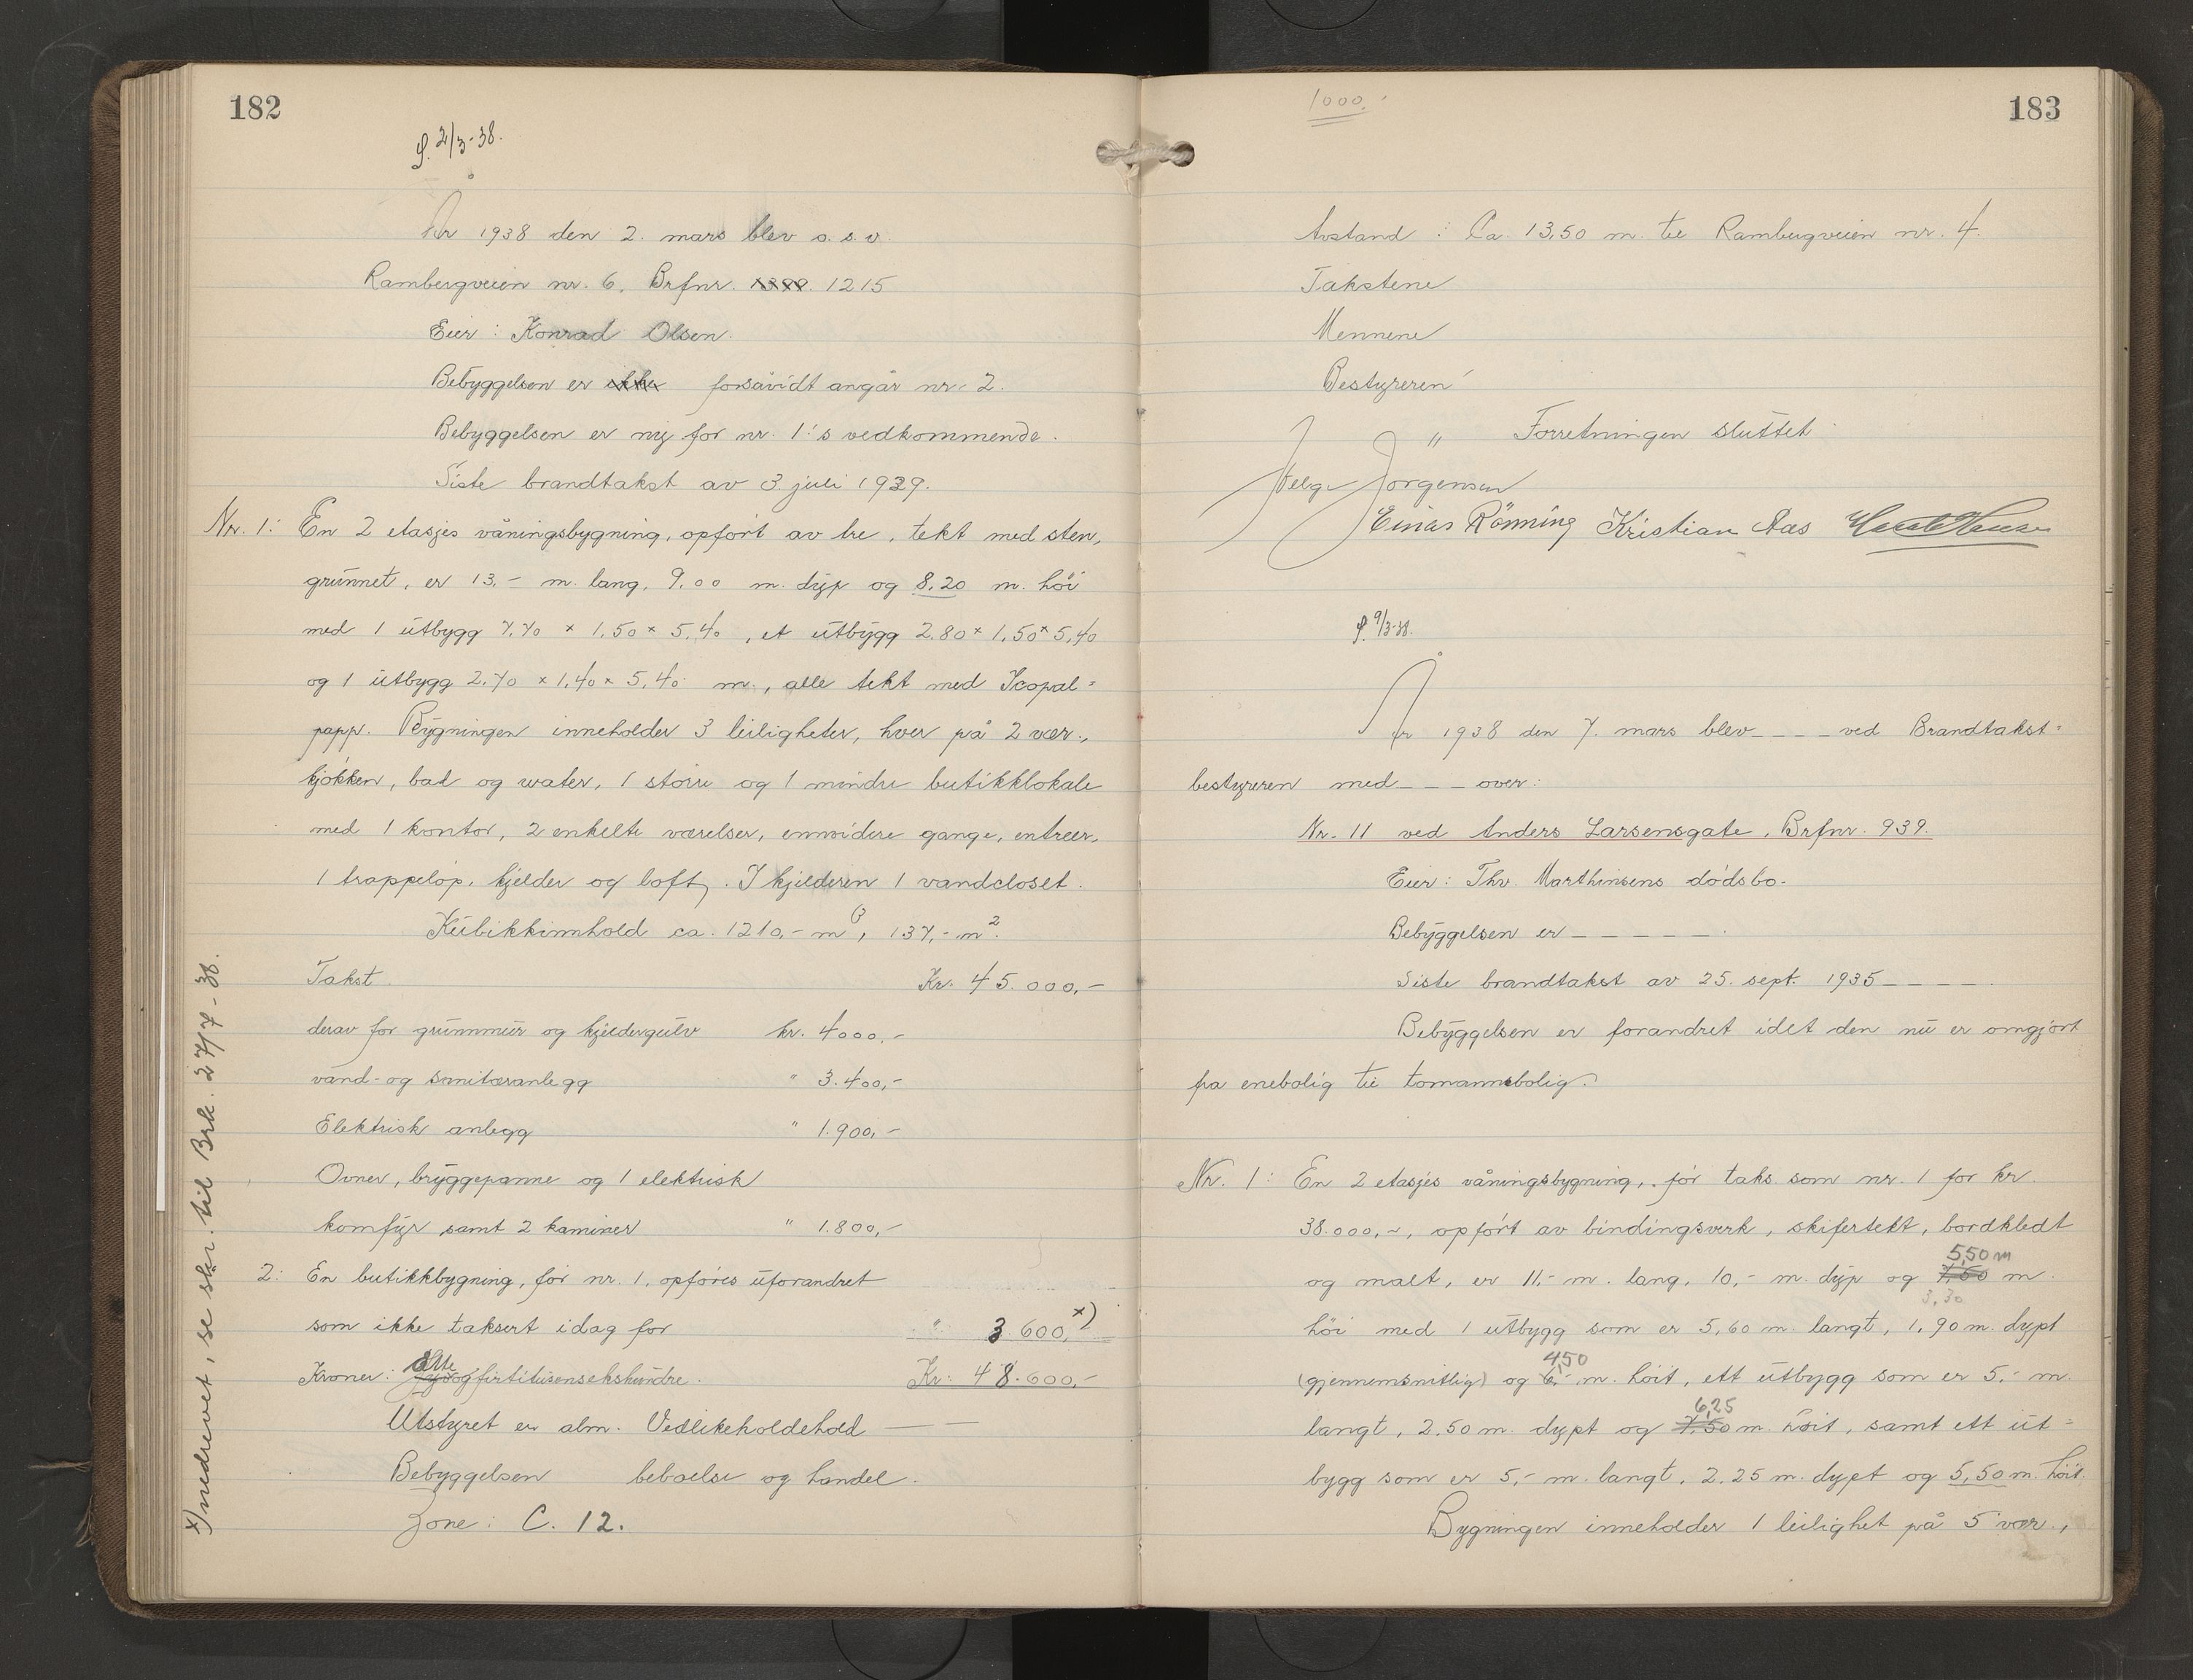 182
f. 2/3-38.
År 1938 den 2. mars blev o.s.v.
Rambergveien nr. 6, Brfnr. 1215
Eier: Konrad Olsen.
Bebyggelsen er ikke forsåvidt angår nr. 2.
Bebyggelsen er ny for nr. 1's vedkommende.
Siste brandtakst av 3. juli 1929.
Nr. 1: En 2 etasjes våningsbygning, opført av tre, tekt med sten,
grunnet, er 13,- m. lang, 9.00 m. dyp og 8,20 m. höi
med 1 utbygg 7,70 x 1,50 x 5,40, et utbygg 2.80 x 1,50 x 5,40
og 1 utbygg 2.70 x 1,40 x 5,40 m., alle tekt med Icopal=
papp. Bygningen inneholder 3 leiligheter, hver på 2 vær.,
kjökken, bad og water, 1 större og 1 mindre butikklokale
med 1 kontor, 2 enkelte værelser, ennvidere gange, entreer,
1 trappelöp, kjelder og loft. I kjelderen 1 vandcloset.
Kubikkinnhold ca. 1210,- m3, 137,- m2.
Takst Kr. 45.000,-
derav for grunnmur og kjeldergulv kr. 4000,-
vand- og sanitæranlegg " 3.400,-
Elektrisk anlegg " 1.900,-
Ovner, bryggepanne og 1 elektrisk
komfyr samt 2 kaminer " 1.800,-
2: En butikkbygning, för nr. 1, opföres uforandret
som ikke taksert idag for " 3.600,- x)
Kroner: åtte og firtitusensekshundre. Kr. 48.600,-
Utstyret er alm. Vedlikeholdehold — —
Bebyggelsen beboelse og handel.
Zone: C. 12.
x) nedrevet, se skr. til Brk. 27/7-38.
1000.
183
Avstand: Ca. 13,50 m. til Rambergveien nr. 4.
Takstene
Mennene
Bestyreren
" Forretningen sluttet
Helge Jörgensen
Einar Rönning Kristian Aas
f. 9/3-38.
År 1938 den 7. mars blev - - - - ved Brandtakst=
bestyreren med - - - over:
Nr. 11 ved Anders Larsensgate, Brfnr. 939.
Eier: Thv. Marthinsens dödsbo.
Bebyggelsen er - - - - -
Siste brandtakst av 25. sept. 1935 - - - -
Bebyggelsen er forandret idet den nu er omgjört
fra enebolig til tomannsbolig.
Nr. 1: En 2 etasjes våningsbygning, för taks. som nr. 1 for kr.
38.000,-, opfört av bindingsverk, skifertekt, bordkledt
5,50 m
og malt, er 11,- m. lang, 10,- m. dyp og 7,50 m.
3,30
höi med 1 utbygg som er 5,60 m. langt, 1,90 m. dypt
4,50
(gjennemsnitlig) og 6,- m. höit, ett utbygg som er 5,- m.
6,25
langt, 2.50 m. dypt og 7,50 m. höit, samt ett ut=
bygg som er 5,- m. langt, 2.25 m. dypt og 5,50 m. höit.
Bygningen inneholder 1 leilighet på 5 vær.,